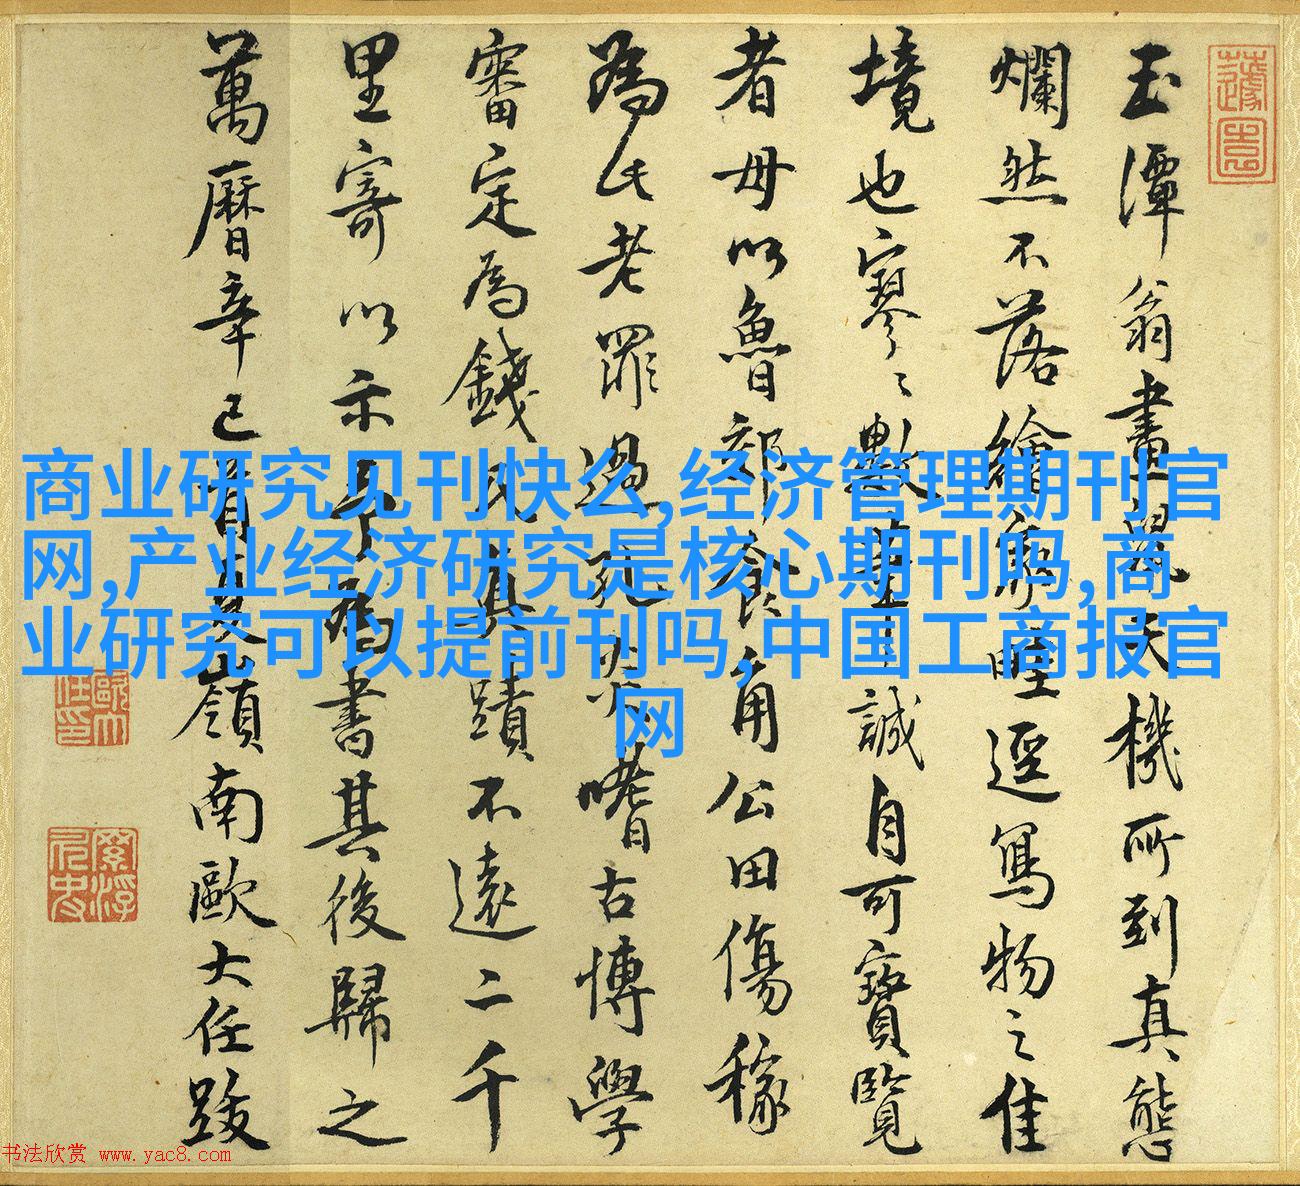 商业研究见刊快么,经济管理期刊官
网,产业经济研究是核心期刊吗,商
业研究可以提前刊吗,中国工商报官
网
玉潭翁畫鼠天機所到真態
爛然不落繪事畦逕寫物之佳
境也寥〻數筆誠自可寶覽
者毋以魯郊食角公田傷稼
為此老罪過嗜古博學
審定為錢氏真蹟不遠二千
里寄以示為書其後歸之
萬曆辛巳首夏嶺南歐大任跋
歐大任印
书法欣赏 www.yac8.com